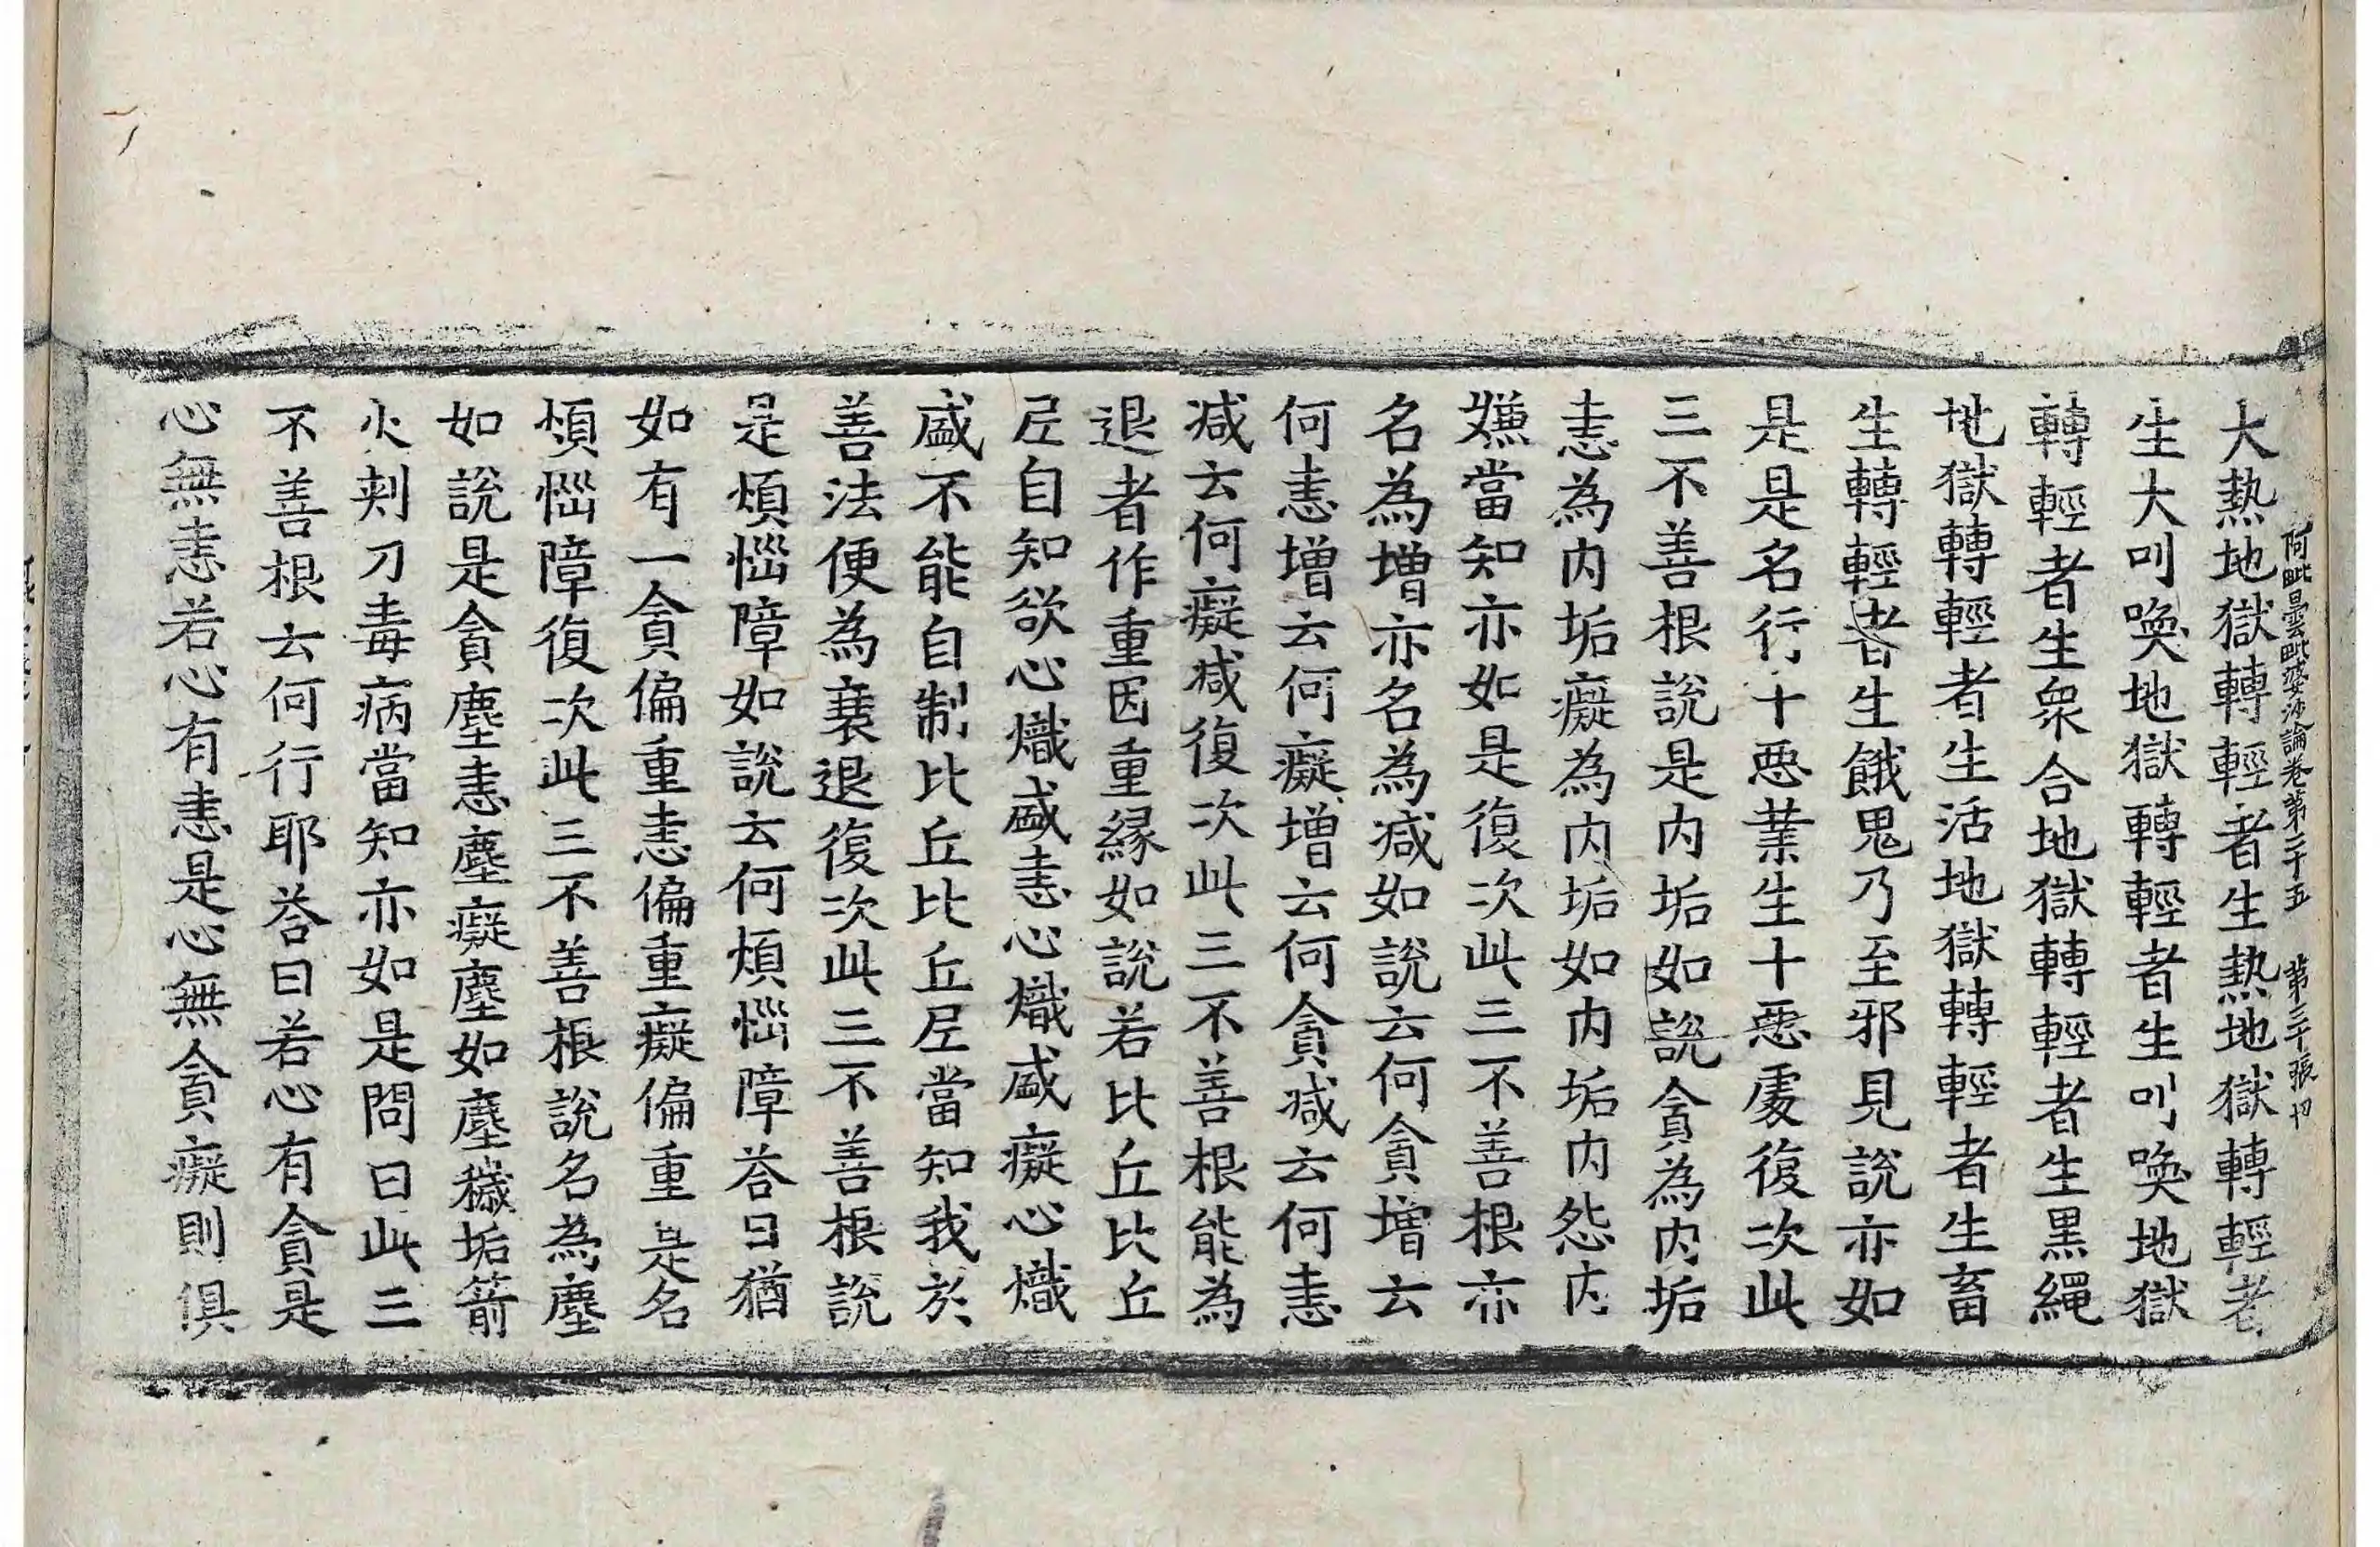 阿毗曇毗婆沙論卷第二十五　第三十張　切
大熱地獄轉輕者生熱地獄轉輕者
生大叫喚地獄轉輕者生叫喚地獄
轉輕者生衆合地獄轉輕者生黑繩
地獄轉輕者生活地獄轉輕者生畜
生轉輕者生餓鬼乃至邪見說亦如
是是名行十惡業生十惡處復次此
三不善根說是内垢如說貪為内垢
恚為内垢癡為内垢如内垢内怨内
嫌當知亦如是復次此三不善根亦
名為增亦名為減如說云何貪增云
何恚增云何癡增云何貪減云何恚
減云何癡減復次此三不善根能為
退者作重因重緣如說若比丘比丘
尼自知欲心熾盛恚心熾盛癡心熾
盛不能自制比丘比丘尼當知我於
善法便為衰退復次此三不善根說
是煩惱障如說云何煩惱障荅曰猶
如有一貪偏重恚偏重癡偏重是名
煩惱障復次此三不善根說名為塵
如說是貪塵恚塵癡塵如塵穢垢箭
火刺刀毒病當知亦如是問曰此三
不善根云何行耶荅曰若心有貪是
心無恚若心有恚是心無貪癡則俱